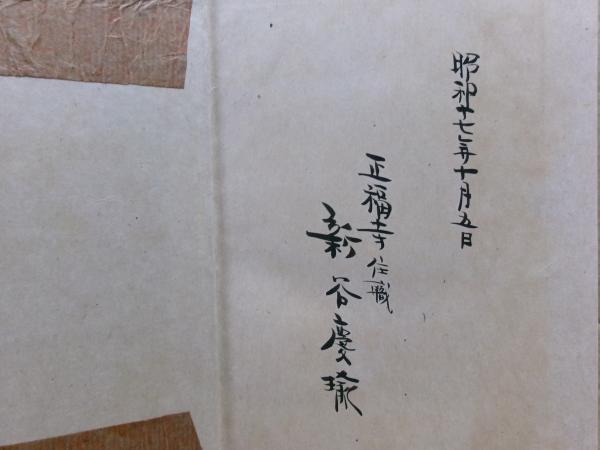 昭和十七年十月五日
正福寺住職
新谷慶瑜